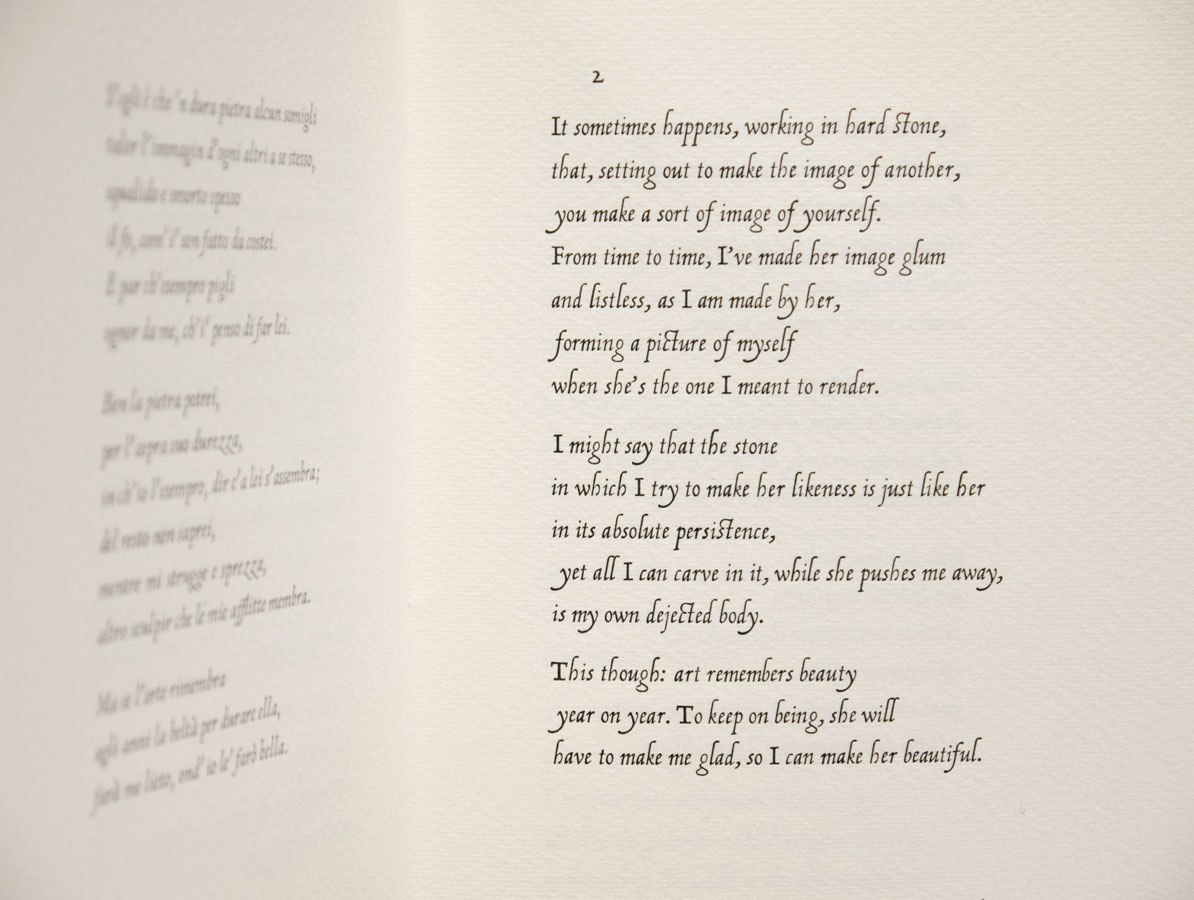 S'egli è che 'n dura pietra alcun somigli
talor l'immagin d'ogni altri a se stesso,
squalido e smorto spesso
il fo, com' i' son fatto da costei.
E par ch'esempro pigli
ognor da me, ch'i' penso di far lei.
Ben la pietra potrei,
per l'aspra suo durezza,
in ch'io l'esempro, dir c'a lei s'assembra;
del resto non saprei,
mentre mi strugge e sprezza,
altro sculpir che le mie afflitte membra.
Ma se l'arte rimembra
agli anni la beltà per durare ella,
farà me lieto, ond' io le' farò bella.
2
It sometimes happens, working in hard stone,
that, setting out to make the image of another,
you make a sort of image of yourself.
From time to time, I've made her image glum
and listless, as I am made by her,
forming a picture of myself
when she's the one I meant to render.
I might say that the stone
in which I try to make her likeness is just like her
in its absolute persistence,
yet all I can carve in it, while she pushes me away,
is my own dejected body.
This though: art remembers beauty
year on year. To keep on being, she will
have to make me glad, so I can make her beautiful.